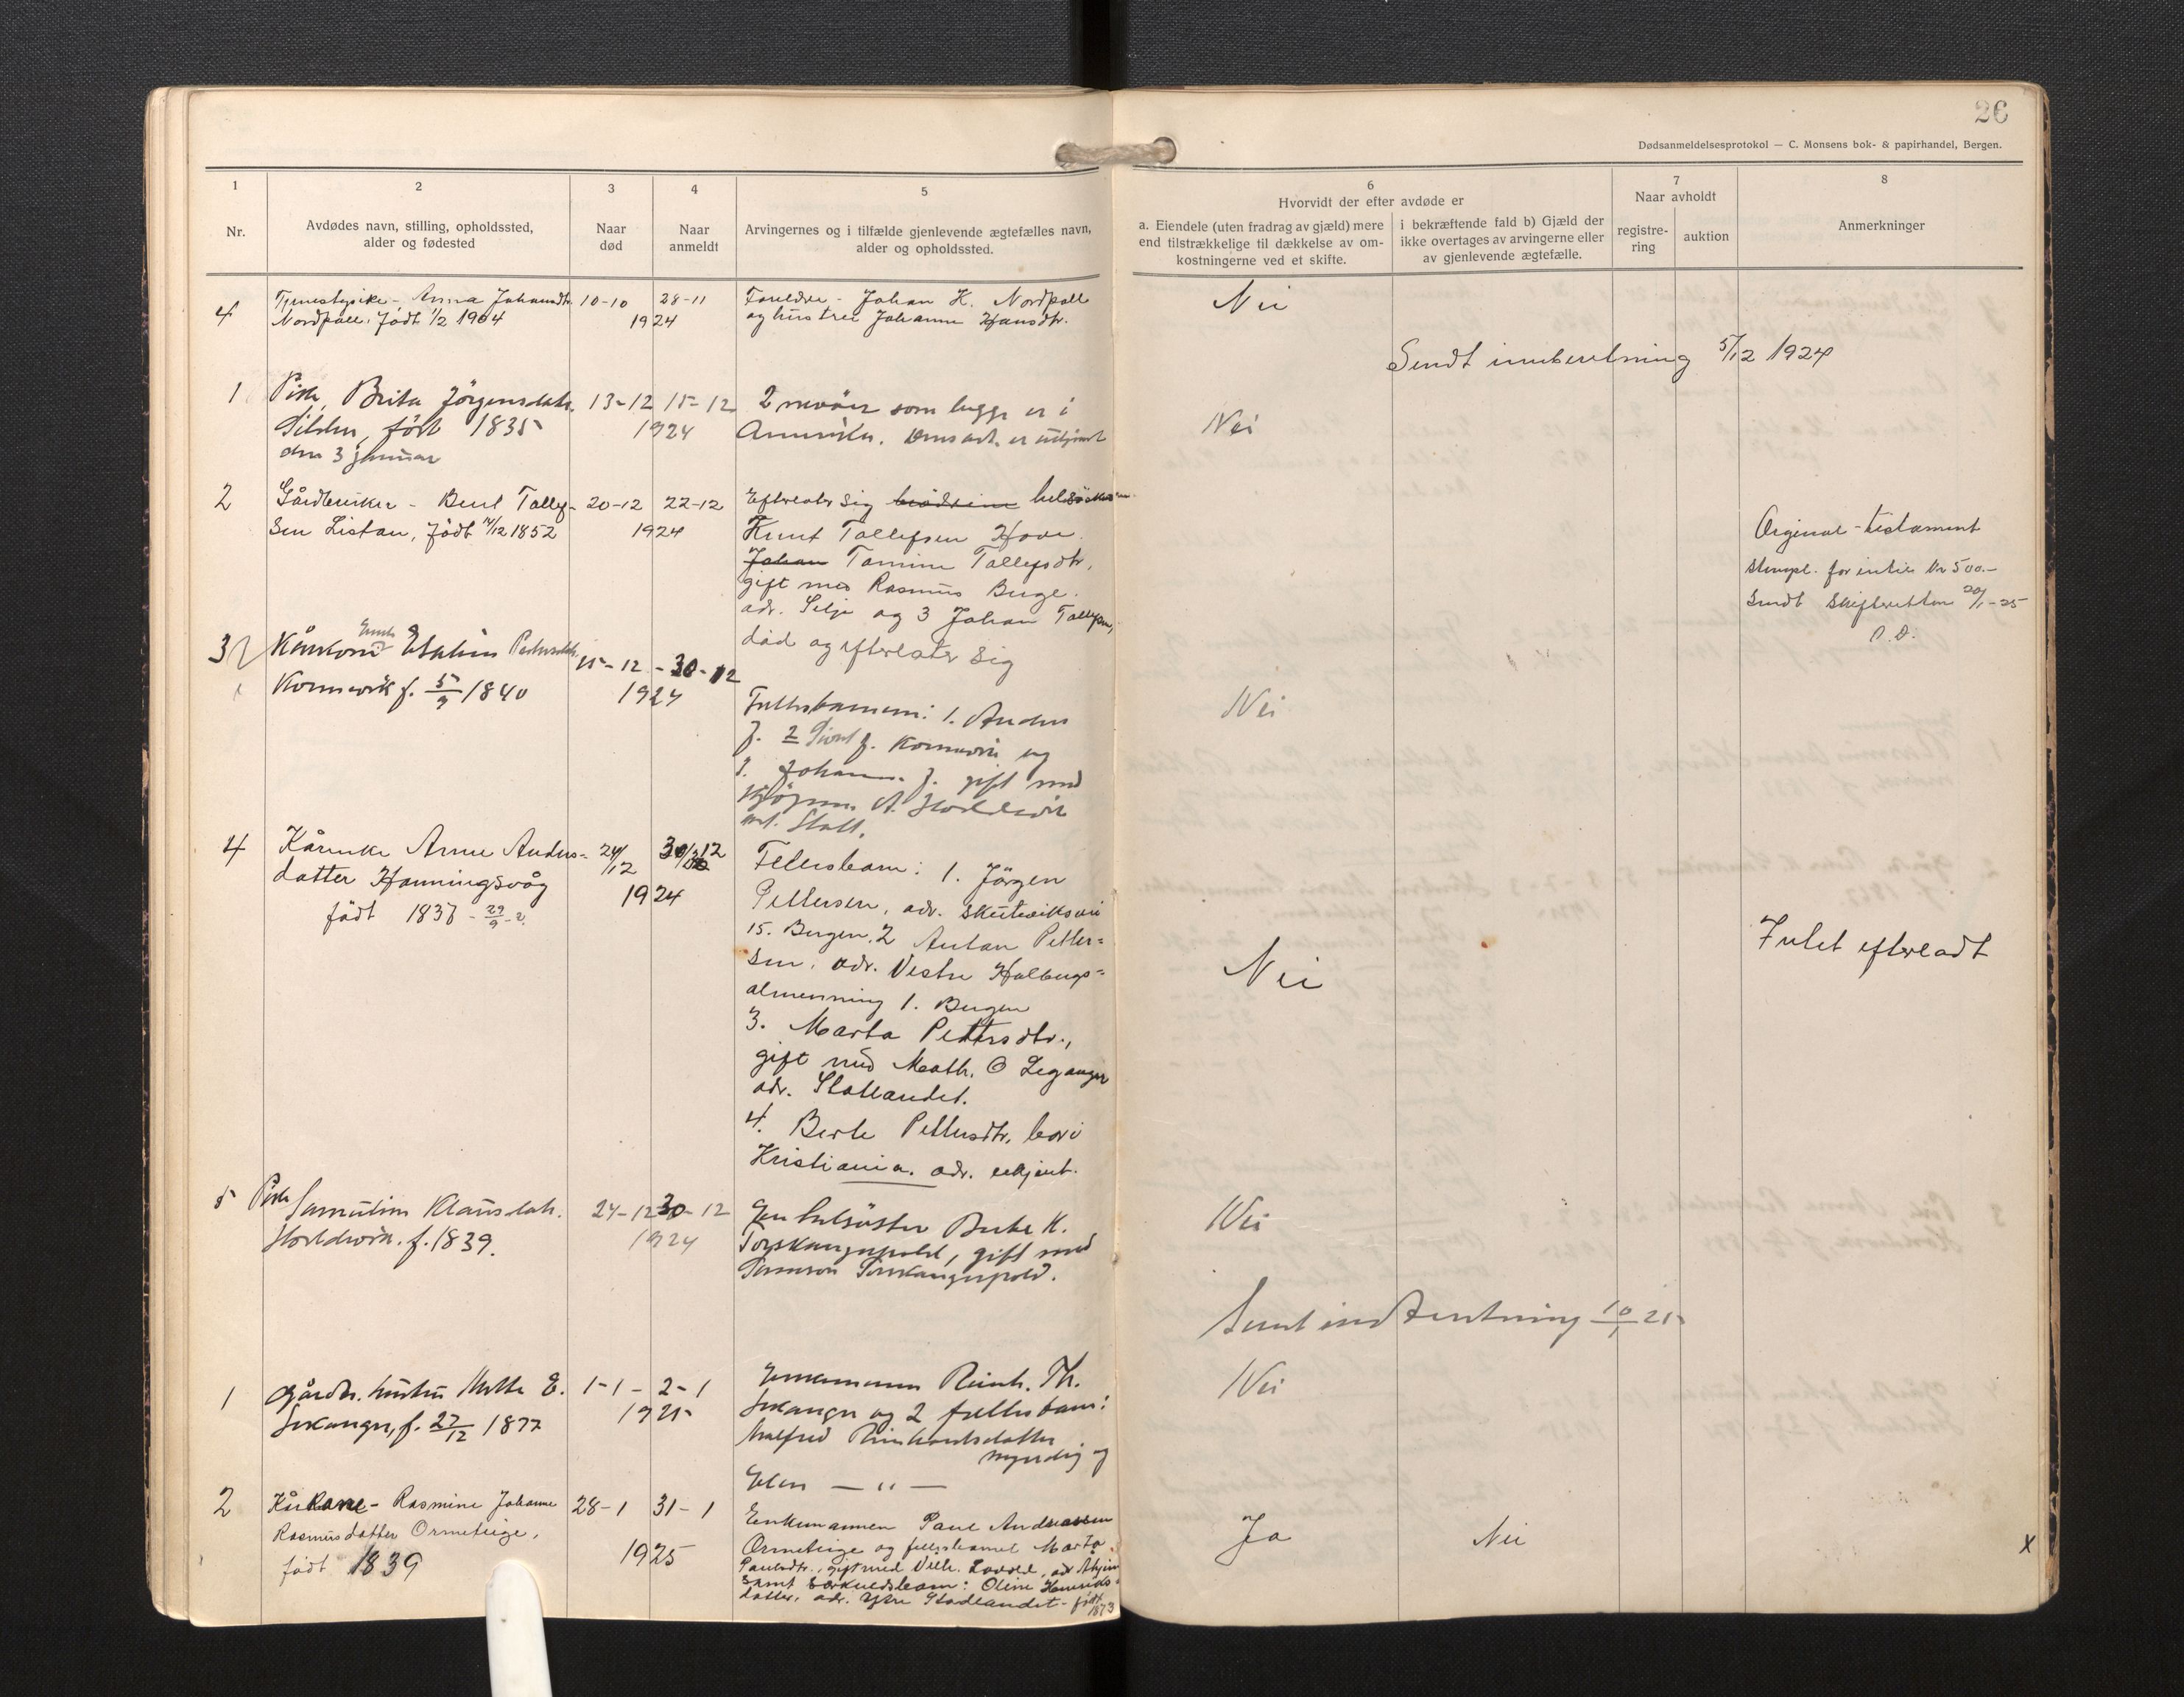 26
Dødsanmeldelsesprotokol — C. Monsens bok- & papirhandel, Bergen.
1
Nr.
2
Avdødes navn, stilling, opholdssted,
alder og fødested
3
Naar
død
4
Naar
anmeldt
5
Arvingernes og i tilfælde gjenlevende ægtefælles navn,
alder og opholdssted.
6
Hvorvidt der efter avdøde er
a. Eiendele (uten fradrag av gjæld) mere
end tilstrækkelige til dækkelse av om-
kostningerne ved et skifte.
i bekræftende fald b) Gjæld der
ikke overtages av arvingerne eller
av gjenlevende ægtefælle.
7
Naar avholdt
registre-
ring
auktion
8
Anmerkninger
4
Tjenestepike - Anna Johansdtr.
Nordpoll. Født 1/2 1904
10-10 28-11
1924
Foreldre - Johan K. Nordpoll
og hustru Johanne Hansdtr.
Nei
Sendt innberetning 5/12 1924
1
Pike, Brita Jörgensdatr.
födt 1835
den 3 januar
13-12 15-12
1924
2 nevöer som begge er i
Amerika.
Nei
2
Gårdbruker - Bent Tollef-
sen Listau, født 14/12 1852
20-12 22-12
1924
Efterlater sig helsösken
Knut Tollefsen Hove
Johan Tomine Tollefsdtr,
gift med Rasmus Berge.
adr. Selje og 3 Johan Tollefsen,
död og efterlater sig
Orginal-testament
stempl. for inntil kr 500.-
Sendt Skifteretten 20/1-25
P.D.
3
Kårkone Enke Pedersdatr.
f. 5/9 1840
15-12 - 30-12
1924
Fellesbarnene: 1. Anders
J. 2 J. og
3. Johan J. gift med
A.
adr. Statt.
Nei
4
Kårenke Anne Anders-
datter Honningsvåg
födt 1837 - 29/9 - ?
24/12 30/12
1924
Fellesbarn: 1. Jörgen
Pettersen, adr. Skuteviksvei
15. Bergen. 2 Anton Petter-
sen. adr. Vestre Holbergs-
almenning 1. Bergen
3. Marta Pettersdtr.,
gift med Math. O Leganger
adr. Stattlandet.
4. Berte Pettersdtr, bor i
Kristiania. adr. ukjent.
Nei
Intet efterladt
5
Pike Klausdatr.
f. 1839.
24-12 30-12
1924
En helsöster Berte K.
gift med
Nei
Sendt indberetning 10/1 25
1
Gårdbr. hustru Mette E.
f. 27/12 1877
1-1 - 2-1
1925
Enkemann Reinh. Th.
og 2 fellesbarn:
Reinhardsdatter
myndig og
Elen — " —
Nei
2
Kårkone - Rasmine Johanne
Rasmusdatter Ormeteige,
födt 1839
28-1 31-1
1925
Enkemannen Paul Andreassen
Ormeteige og fellesbarnet Marta
Paulsdtr., gift med Vilh. adr Åhjem
samt særkuldsbarn: Oline Henriks-
datter, adr. Ytre Stadlandet - født
1873
Ja
Nei
x